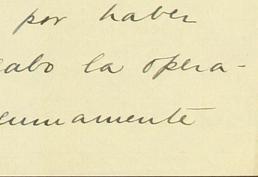 por haber
cabo la opera-
gumamente